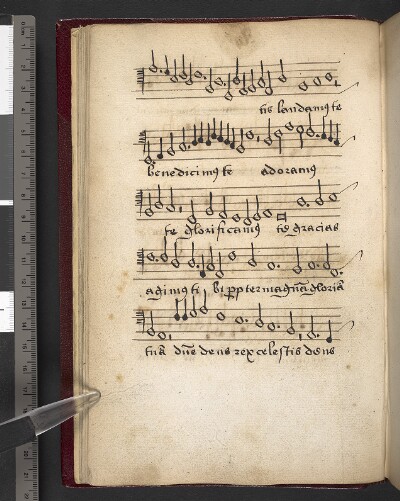 tis laudamus te
benedicimus te adoramus
te glorificamus te gracias
agimus ti bi ppter magnā gloriā
tuā dne deus rex celestis deus